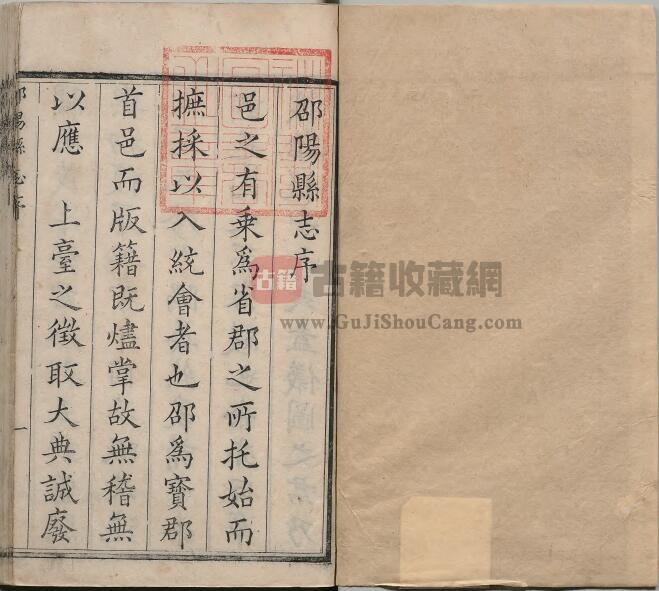 邵陽縣志序
邑之有乗爲省郡之所托始而
摭採以入統會者也邵爲寳郡
首邑而版籍既燼掌故無稽無
以應　上臺之徵取大典誠廢
邵陽縣志序
一
古籍
古籍收藏網
www.GuJiShouCang.com